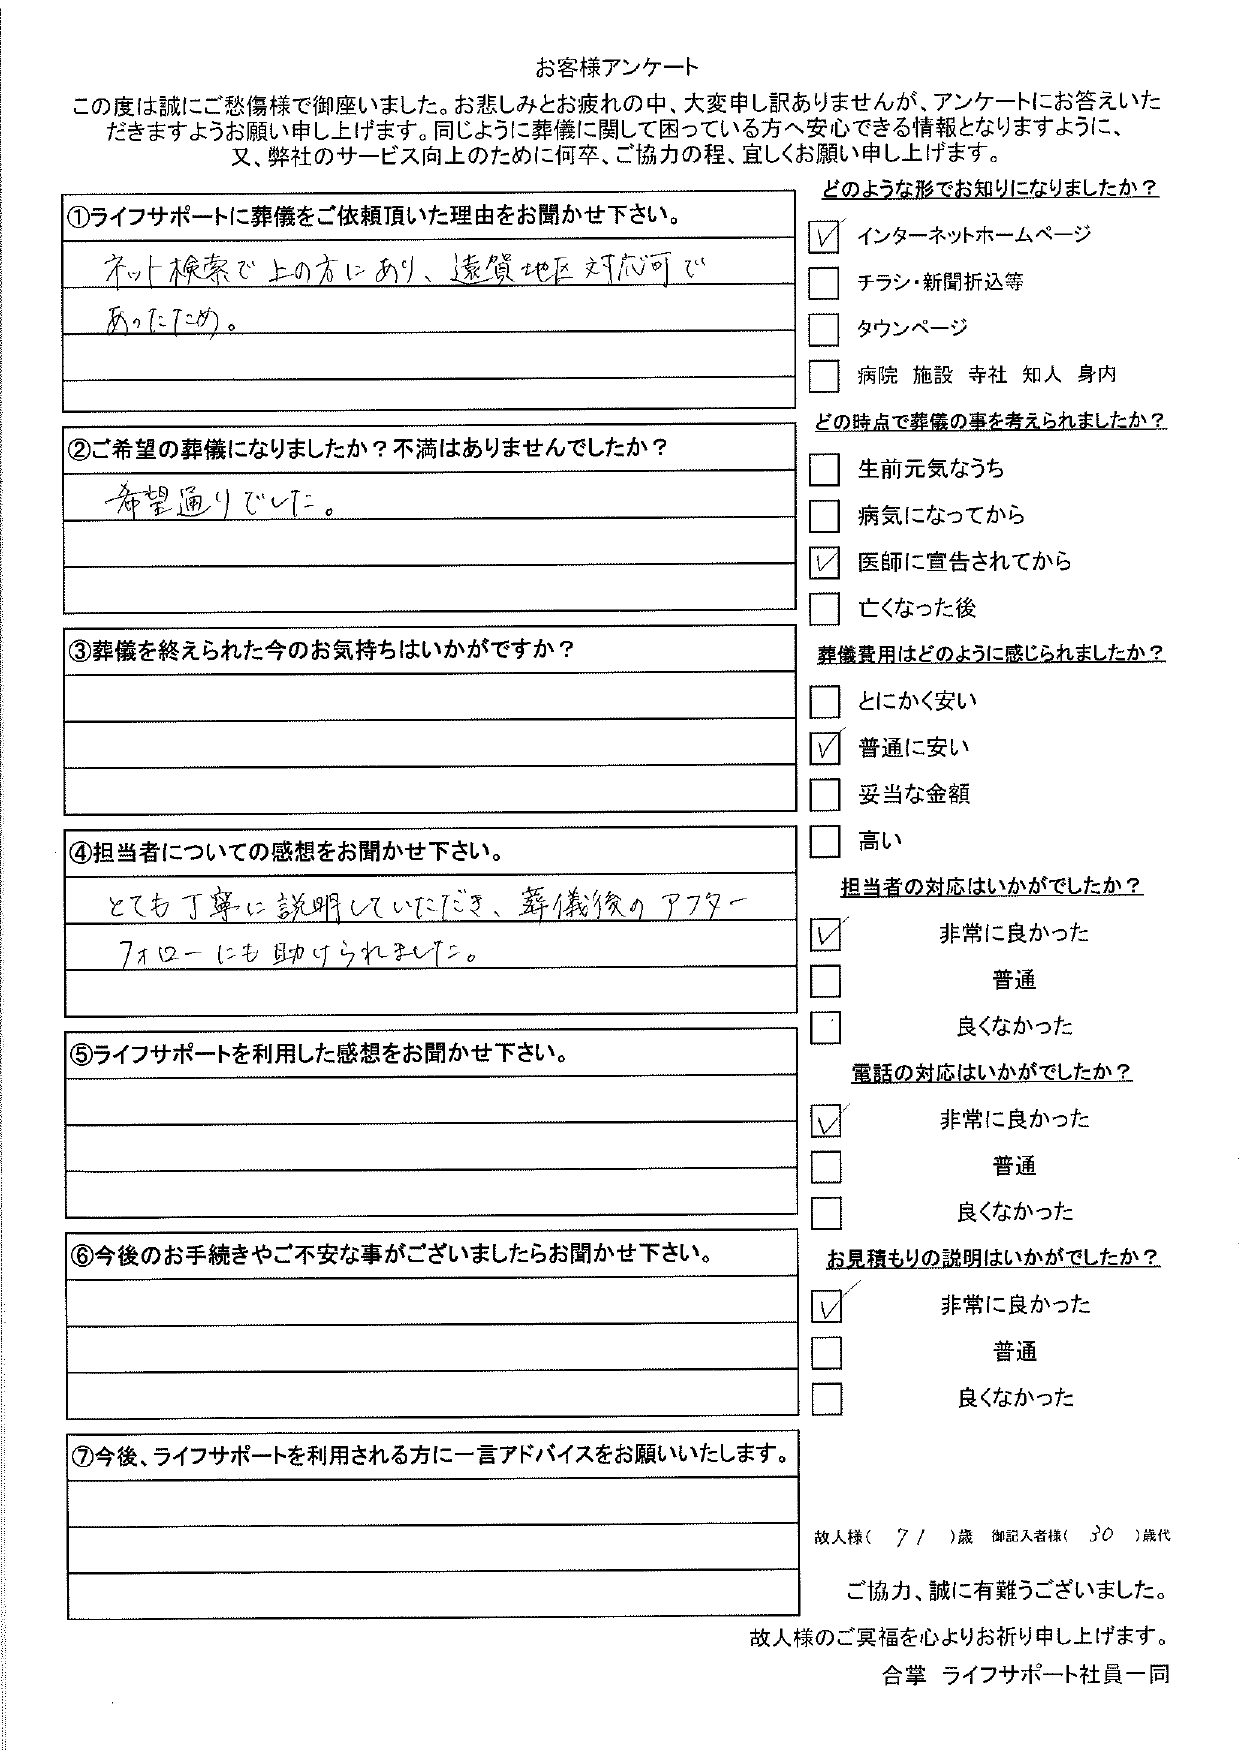 お客様アンケート
この度は誠にご愁傷様で御座いました。お悲しみとお疲れの中、大変申し訳ありませんが、アンケートにお答えいた
だきますようお願い申し上げます。同じように葬儀に関して困っている方へ安心できる情報となりますように、
又、弊社のサービス向上のために何卒、ご協力の程、宜しくお願い申し上げます。
①ライフサポートに葬儀をご依頼頂いた理由をお聞かせ下さい。
ネット検索で上の方にあり、遠賀地区対応可で
あったため。
②ご希望の葬儀になりましたか？不満はありませんでしたか？
希望通りでした。
③葬儀を終えられた今のお気持ちはいかがですか？
④担当者についての感想をお聞かせ下さい。
とても丁寧に説明していただき、葬儀後のアフター
フォローにも助けられました。
⑤ライフサポートを利用した感想をお聞かせ下さい。
⑥今後のお手続きやご不安な事がございましたらお聞かせ下さい。
⑦今後、ライフサポートを利用される方に一言アドバイスをお願いいたします。
どのような形でお知りになりましたか？
インターネットホームページ
チラシ・新聞折込等
タウンページ
病院 施設 寺社 知人 身内
どの時点で葬儀の事を考えられましたか？
生前元気なうち
病気になってから
医師に宣告されてから
亡くなった後
葬儀費用はどのように感じられましたか？
とにかく安い
普通に安い
妥当な金額
高い
担当者の対応はいかがでしたか？
非常に良かった
普通
良くなかった
電話の対応はいかがでしたか？
非常に良かった
普通
良くなかった
お見積もりの説明はいかがでしたか？
非常に良かった
普通
良くなかった
故人様( 71 )歳 御記入者様( 30 )歳代
ご協力、誠に有難うございました。
故人様のご冥福を心よりお祈り申し上げます。
合掌 ライフサポート社員一同